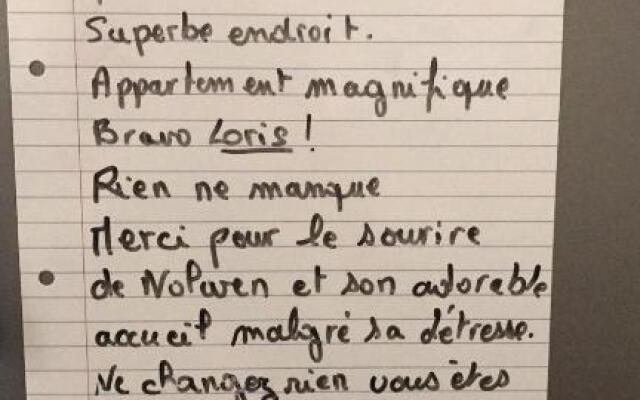 Superbe endroit.
Appartement magnifique
Bravo Loris !
Rien ne manque
Merci pour le sourire
de Nolwen et son adorable
accueil malgré sa détresse.
Ne changez rien vous êtes